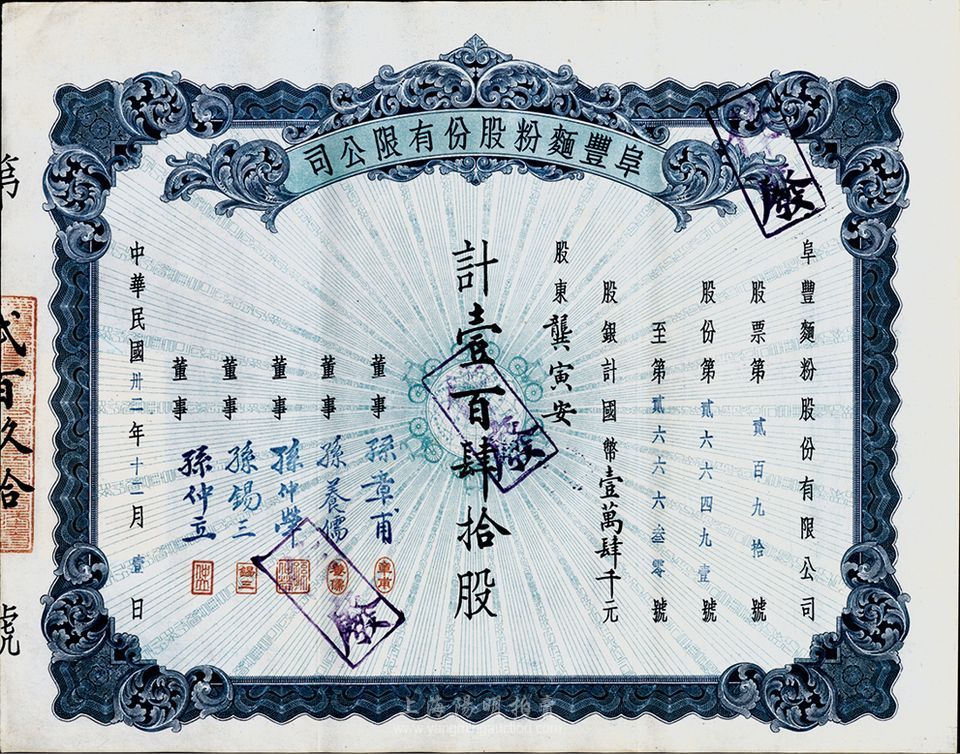 阜豐麵粉股份有限公司
阜豐麵粉股份有限公司
股票第貳百九拾號
股份第貳六六四九壹號
至第貳六六六叁零號
股銀計國幣壹萬肆千元
股東龔寅安
計壹百肆拾股
董事 孫章甫
章甫
董事 孫養儒
養儒
董事 孫仲犖
董事 孫錫三
錫三
董事 孫仲立
仲立
中華民國卅二年十二月壹日
第弍百久拾號
廢
廢
廢
上海陽明拍賣
www.yangmingauction.com